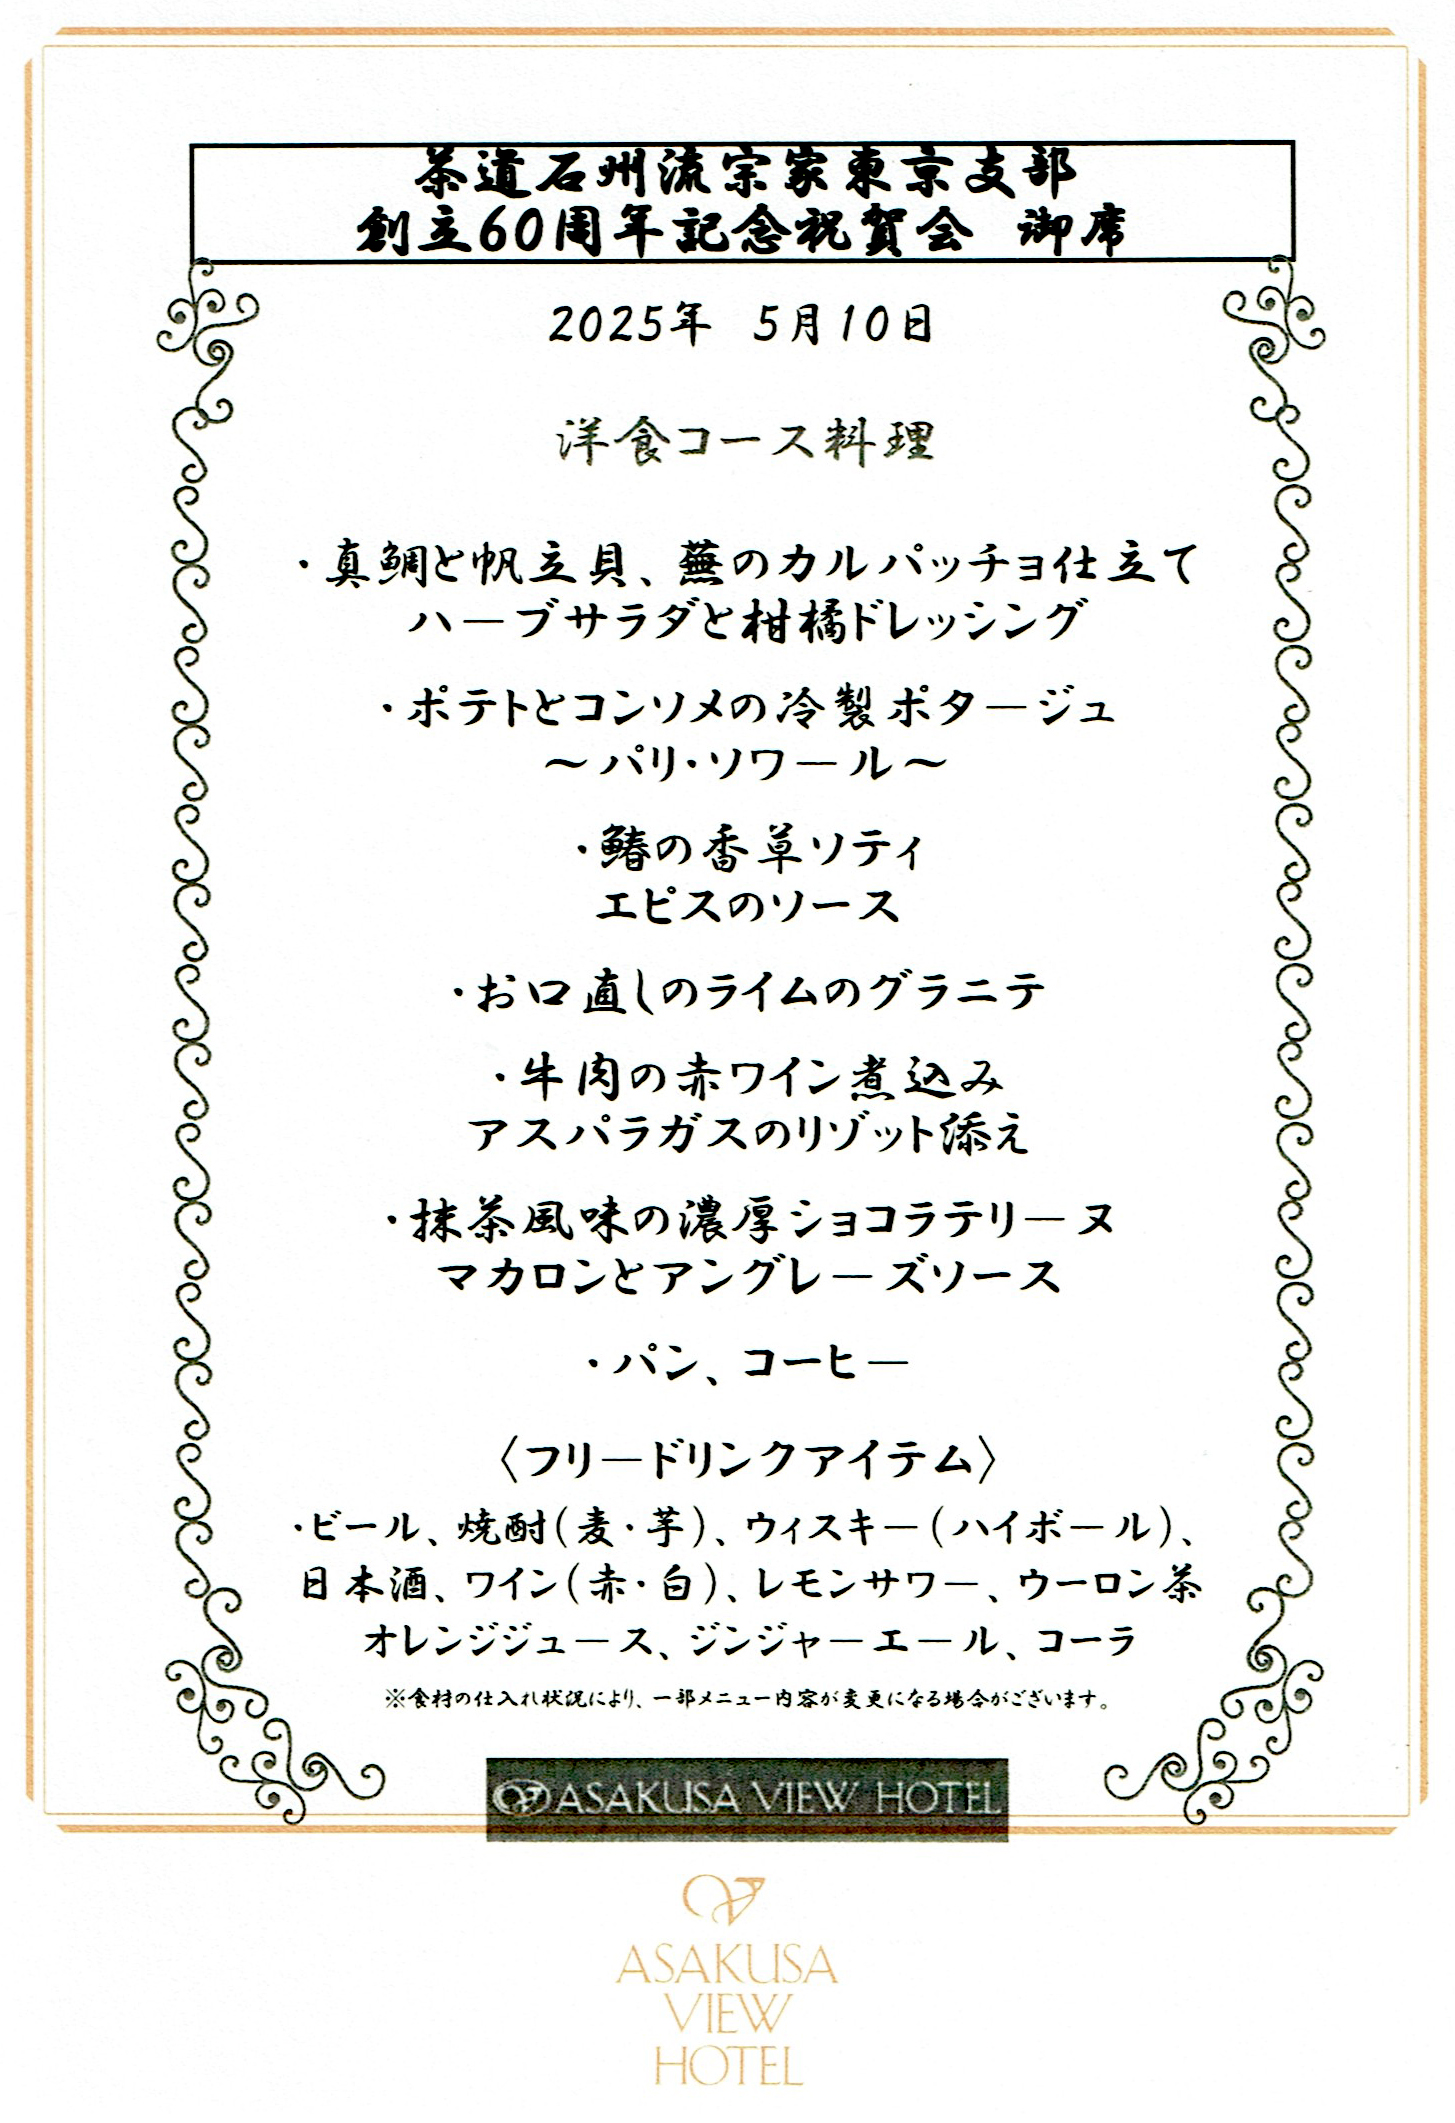 茶道石州流宗家東京支部
創立60周年記念祝賀会 御席
2025年 5月10日
洋食コース料理
・真鯛と帆立貝、蕪のカルパッチョ仕立て
ハーブサラダと柑橘ドレッシング
・ポテトとコンソメの冷製ポタージュ
～パリ・ソワール～
・鰆の香草ソティ
エピスのソース
・お口直しのライムのグラニテ
・牛肉の赤ワイン煮込み
アスパラガスのリゾット添え
・抹茶風味の濃厚ショコラテリーヌ
マカロンとアングレーズソース
・パン、コーヒー
〈フリードリンクアイテム〉
・ビール、焼酎(麦・芋)、ウィスキー(ハイボール)、
日本酒、ワイン(赤・白)、レモンサワー、ウーロン茶
オレンジジュース、ジンジャーエール、コーラ
※食材の仕入れ状況により、一部メニュー内容が変更になる場合がございます。
ASAKUSA VIEW HOTEL
ASAKUSA
VIEW
HOTEL